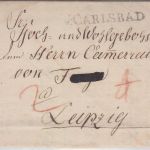 CARLSBAD
Sr
Hoch- und Wohlgebohr
dem Herrn Cammerrat
von
a
Leipzig